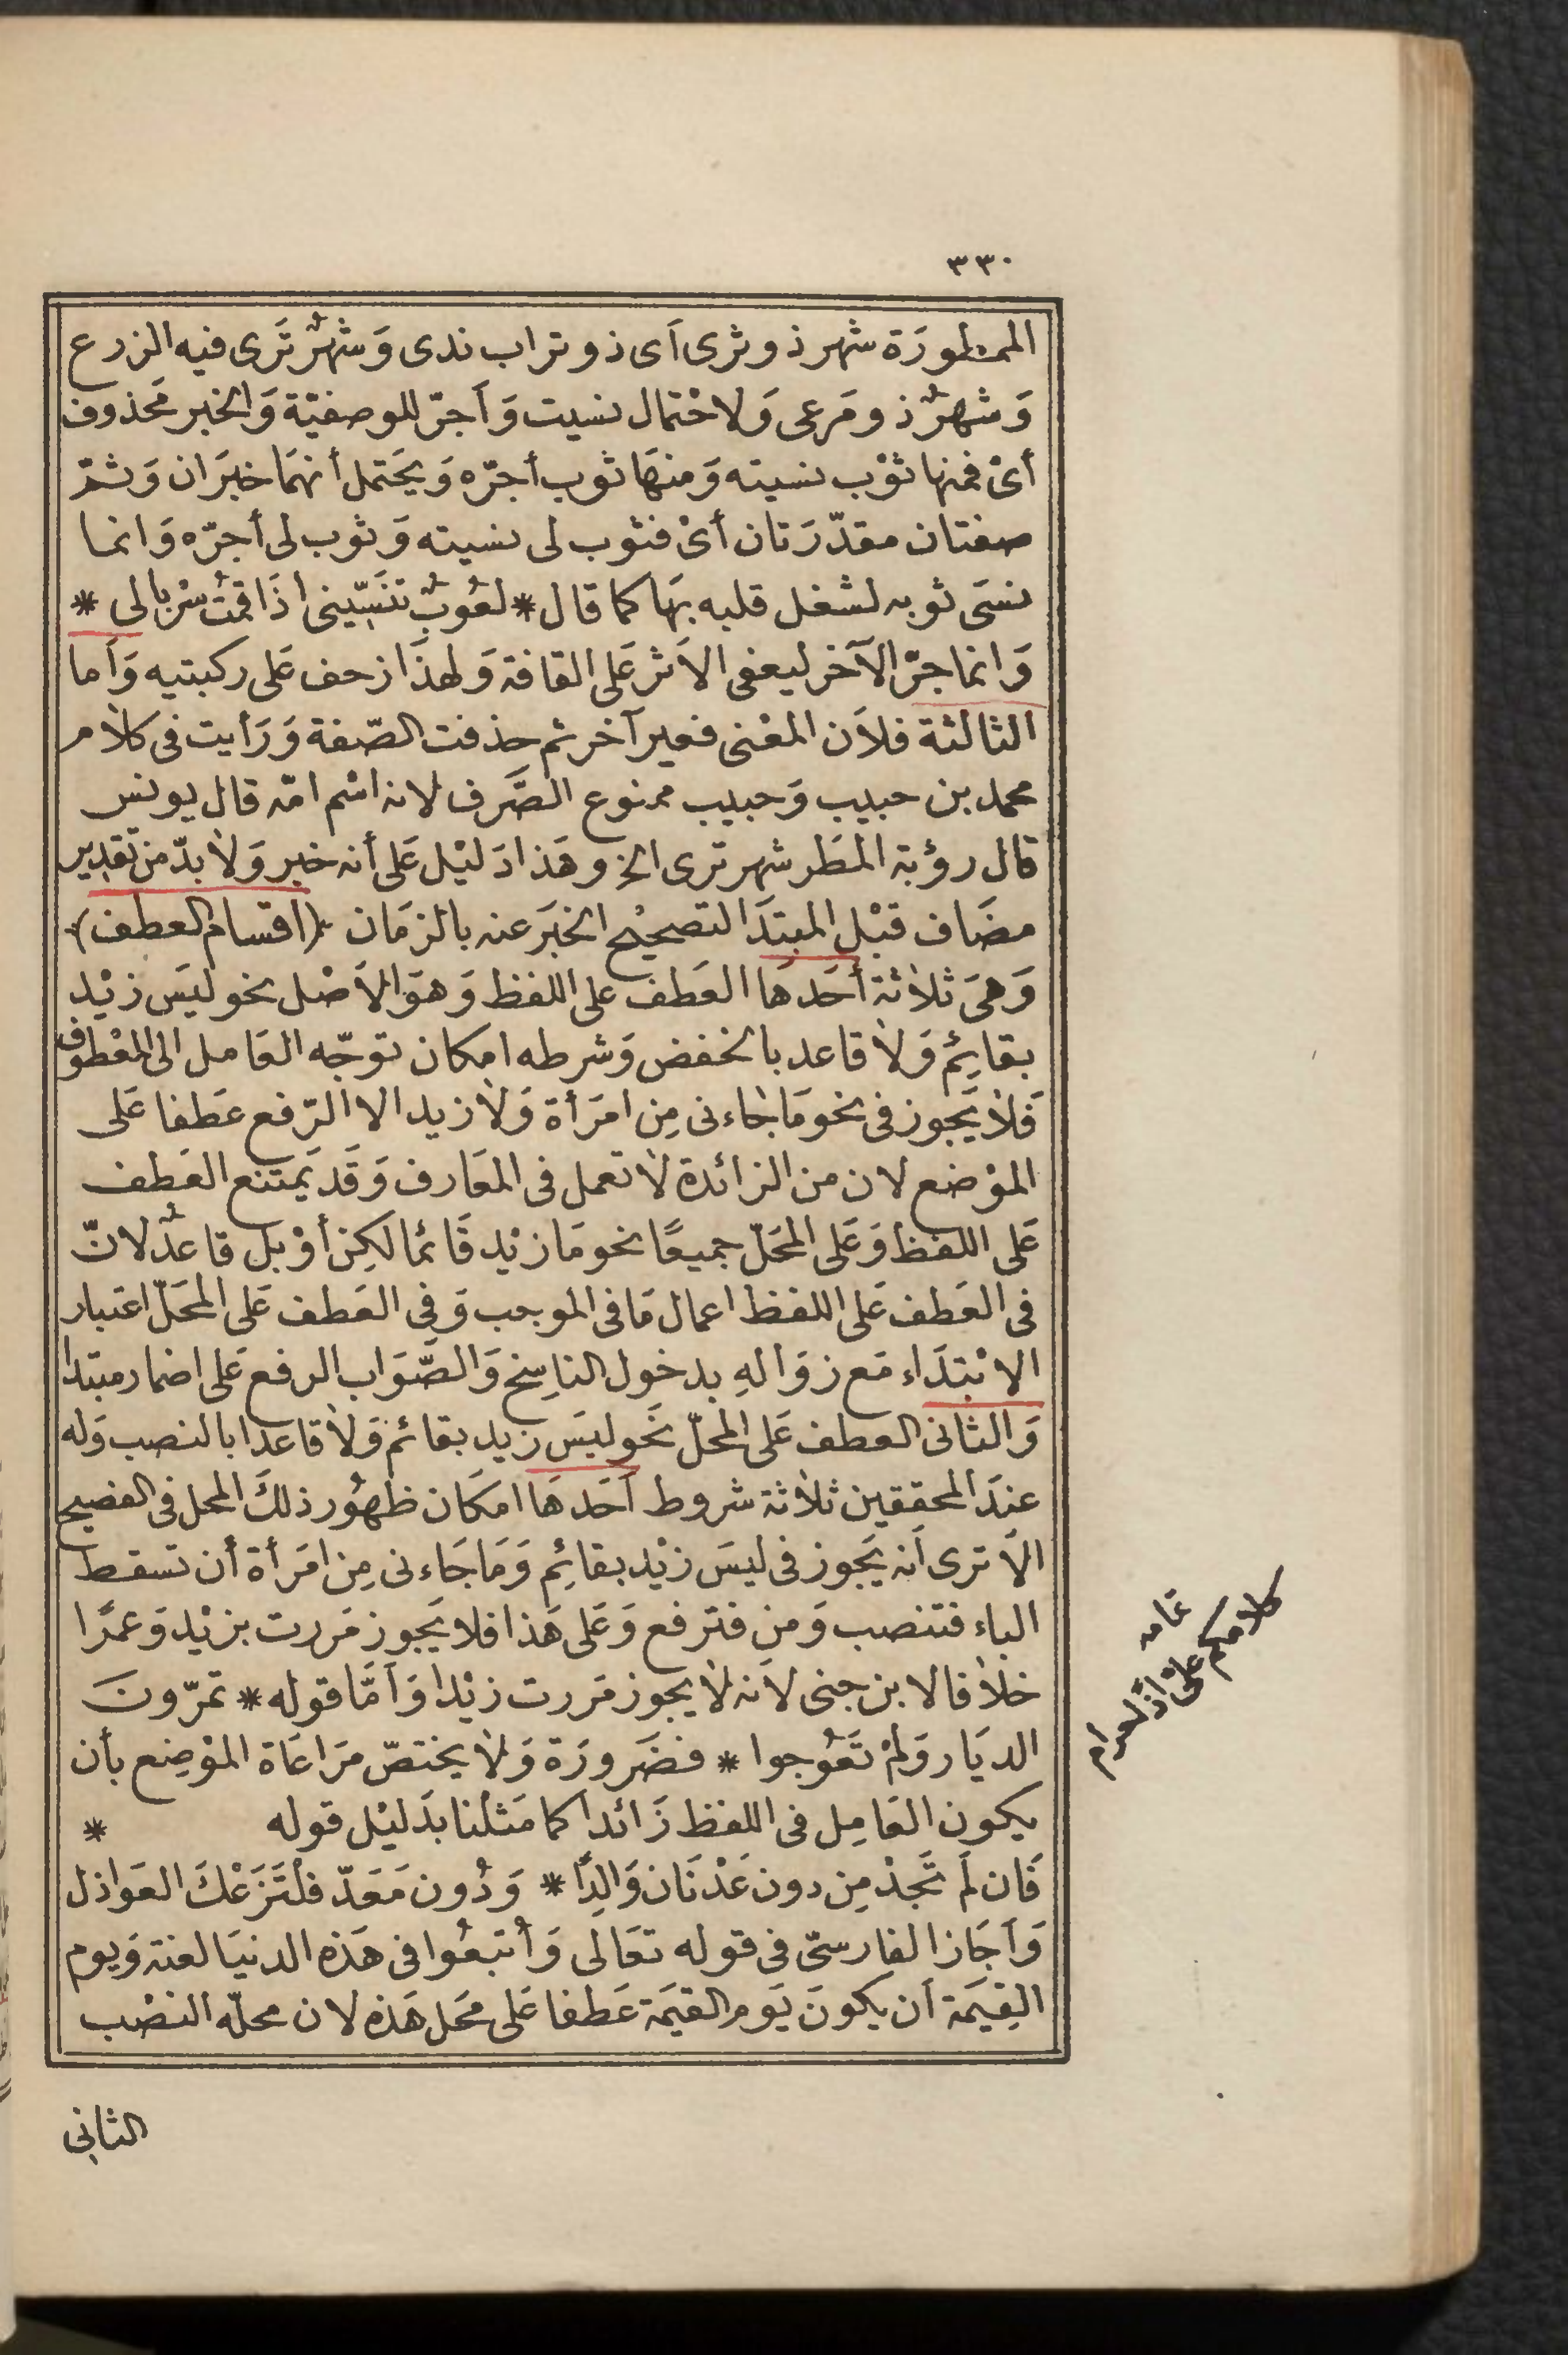 ٣٣٠
الممطورَة شهر ذو ثرى اَى ذو تراب ندى وَشهرٌ تَرى فيه الزرع
وَشهرٌ ذو مَرعى وَلاحْتمال نسيت وَاَجرّ للوصفيّة وَالخبر مَحذوف
أىْ فمنها ثوْب نسيته وَمنهَا ثوب أجرّه وَيحَتمل أنهمَا خبرَان وَثمّ
صفتان مقدّرَتان أىْ فثوب لى نسيته وَثوب لى أجرّه وَانما
نسَى ثوبه لشغل قلبه بهَا كما قال * لعُوبٌ تنَسّينى اذَا قمْتُ سرْبالى *
وَانما جرّ الآخر ليعفى الاَثر عَلى القافة وَلهذَا زحف عَلى ركبتيه وَاَما
الثالثة فلاَن المعْنى فعير آخر ثم حذفت الصّفة وَرَأيت فى كلاٰم
محمد بن حبيب وَحبيب ممنوع الصَّرف لانه اسْم امّه قال يونس
قال رؤبة المطَر شهر ترى الخ وهَذا دَليْل عَلى أنه خبر وَلاٰ بدّ من تقدير
مضَاف قبْل المبتدَا لتصحيْح الخبَر عنه بالزمَان ﴿اقسام العطف﴾
وَهىَ ثلاٰثة أحَدهَا العَطف على اللفظ وَهوَ الاَصْل نحو ليَس زيْد
بقائِم وَلاٰ قاعد بالخفض وَشرطه امكان توجّه العَامل الى المعْطوف
فَلاٰ يَجوز فى نحو مَا جَاءنى مِن امرَأة وَلاٰ زيد الا الرّفع عَطفا عَلى
الموْضع لان من الزائدة لاٰ تعمل فى المعَارف وَقَد يَمتنع العَطف
عَلى اللفظ وَعَلى المحَلّ جميعًا نحو مَا زيْد قَائما لكِن أوْ بل قاعدٌ لانّ
فى العَطف عَلى اللفظ اعمال مَا فى الموجب وَفى العَطف عَلى المحَلّ اعتبار
الابْتدَاء مَع زوَالهِ بدخول الناسِخ وَالصَّوَاب الرفع عَلى اضمار مبتدا
وَالثانى العطف عَلى المحلّ نحَو ليَس زيد بقائم وَلاٰ قاعدا بالنصب وَله
عندَ المحققين ثلاٰثة شروط اَحَدهَا امكَان ظهُور ذلكَ المحل فى الفصيح
الاَ ترى اَنه يَجوز فى ليسَ زيْد بقائِم وَمَا جَاءنى مِن امرَأة أن تسقط
الباء فتنصب وَمن فترفع وَعَلى هَذا فلا يَجوز مَررت بزيْد وَعمرًا
خلاٰفا لابن جنى لاَنه لاٰ يجوز مَررت زيْدا وَاَمّا قوله * تمرّونَ
الديَار وَلمْ تَعُوجوا * فضَرورَة وَلاٰ يختصّ مرَاعَاة الموْضِع بأن
يكون العَامِل فى اللفظ زَائدا كما مَثلْنا بدَليْل قوله *
فَان لَم تَجدْ مِن دون عَدْنَان وَالِدًا * وَدُون مَعَدّ فلتَزَعْكَ العَواذل
وَاَجَاز الفارسىّ فى قوله تعَالى وَأُتبعُوا فى هَذه الدنيَا لعنة وَيوم
القِيَمَة اَن يكونَ يَوم القيَمَة عَطفا عَلى مَحَل هَذه لان محلّه النصْب
الثانى
تمامه
كلامكم علىّ اذًا حرام